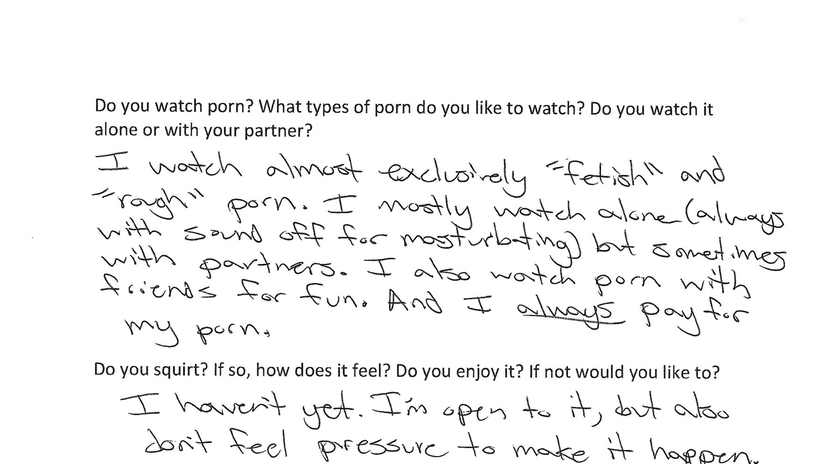 Do you watch porn? What types of porn do you like to watch? Do you watch it
alone or with your partner?
I watch almost exclusively "fetish" and
"rough" porn. I mostly watch alone (always
with sound off for masturbating) but sometimes
with partners. I also watch porn with
friends for fun. And I always pay for
my porn.
Do you squirt? If so, how does it feel? Do you enjoy it? If not would you like to?
I haven't yet. I'm open to it, but also
don't feel pressure to make it happen.